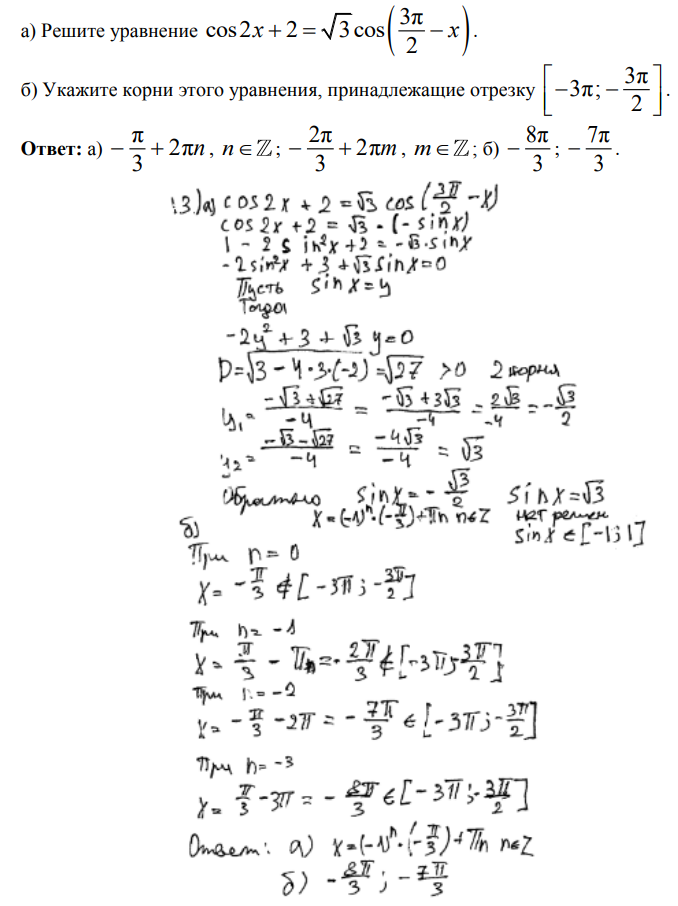 а) Решите уравнение cos2x + 2 = √3cos(3π/2 − x).
б) Укажите корни этого уравнения, принадлежащие отрезку [−3π; −3π/2].
Ответ: а) −π/3 + 2πn, n ∈ ℤ; −2π/3 + 2πm, m ∈ ℤ; б) −8π/3; −7π/3.
13.) а) cos 2x + 2 = √3 cos (3π/2 − x)
cos 2x + 2 = √3 · (− sin x)
1 − 2 sin²x + 2 = −√3 · sin x
− 2 sin²x + 3 + √3 sin x = 0
Пусть sin x = y
Тогда
−2y² + 3 + √3 y = 0
D = √3 − 4·3·(−2) = √27 > 0 2 корня
y₁ = (−√3 + √27)/−4 = (−√3 + 3√3)/−4 = 2√3/−4 = −√3/2
y₂ = (−√3 − √27)/−4 = −4√3/−4 = √3
Обратно sin x = − √3/2 sin x = √3
x = (−1)ⁿ · (−π/3) + πn n ∈ Z нет решен
sin x ∈ [−1; 1]
б)
При n = 0
x = − π/3 ∉ [−3π; −3π/2]
При n = −1
x = π/3 − π = − 2π/3 ∉ [−3π; 3π/2]
При n = −2
x = − π/3 − 2π = − 7π/3 ∈ [−3π; −3π/2]
При n = −3
x = π/3 − 3π = − 8π/3 ∈ [−3π; −3π/2]
Ответ: а) x = (−1)ⁿ · (−π/3) + πn n ∈ Z
б) − 8π/3 ; − 7π/3